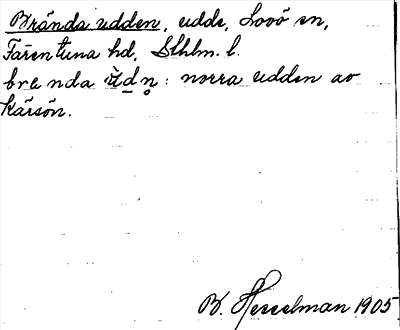 Brända udden, udde, Lovö sn,
Färentuna hd, Sthlm. l.
: norra udden av
Kärsön.
B. Hesselman 1905